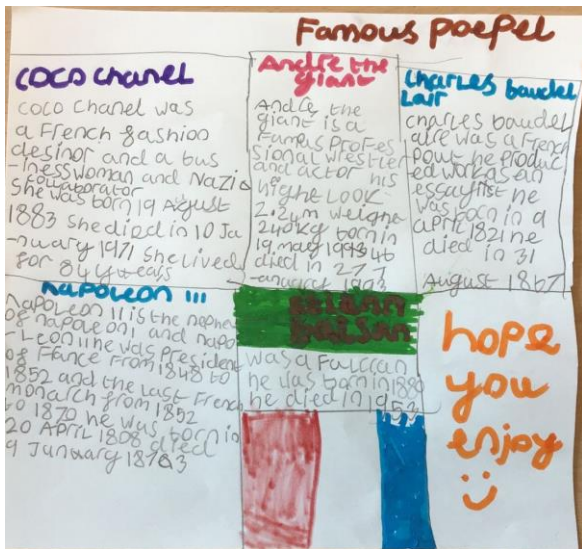 Famous poepel
coco chanel
coco chanel was
a French fashion
desinor and a bus
-inesswoman and Nazi a
collaborator
she was born 19 August
1883 she died in 10 Ja
-nuary 1971 she lived
for 84 years
Andre the
giant
Andre the
giant is a
Famous Profes
sional wrestler
and actor his
hight LOOK
2.24m weight
240kg born in
19 may 1946
died in 27 J
-anuary 1993
charles baudel
lair
charles baudel
aire was a French
pout he produc
ed work as an
essayfist he
was born in 9
april 1821 he
died in 31
August 1867
napoleon III
napoleon II is the nephew
of napoleon I and napo
-leon II he was president
of France from 1848 to
1852 and the last French
monarch from 1852
to 1870 he was born in
20 April 1808 died
9 January 1873
balsan
was a
he was born in 1880
he died in 1953
hope
you
enjoy